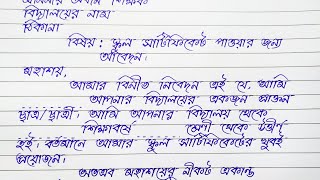 বিদ্যালয়ের নাম
ঠিকানা
বিষয় : স্কুল সার্টিফিকেট পাওয়ার জন্য
আবেদন।
মহাশয়,
আমার বিনীত নিবেদন এই যে, আমি
আপনার বিদ্যালয়ের একজন প্রাক্তন
ছাত্র/ছাত্রী। আমি আপনার বিদ্যালয় থেকে
শিক্ষাবর্ষে শ্রেণী থেকে উত্তীর্ণ
হই। বর্তমানে আমার স্কুল সার্টিফিকেটের খুবই
প্রয়োজন।
অতএব মহাশয়ের নীকট একান্ত